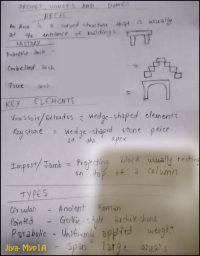 ARCHES, VOUSSOIRS AND DOMES
ARCH
An Arch is a curved structure that is usually
at the entrance of buildings.
HISTORY
arch =
Corbelled arch =
arch =
KEY ELEMENTS
Voussoir/Extrados = wedge-shaped elements
Keystone = wedge-shaped stone piece
at the apex
Impost/Jamb = Projecting block usually resting
on top of a column
TYPES
Circular - Ancient Roman
Pointed - Gothic-style architecture
Parabolic - Uniformly applied weight
- span large
Jiya-MVPIA